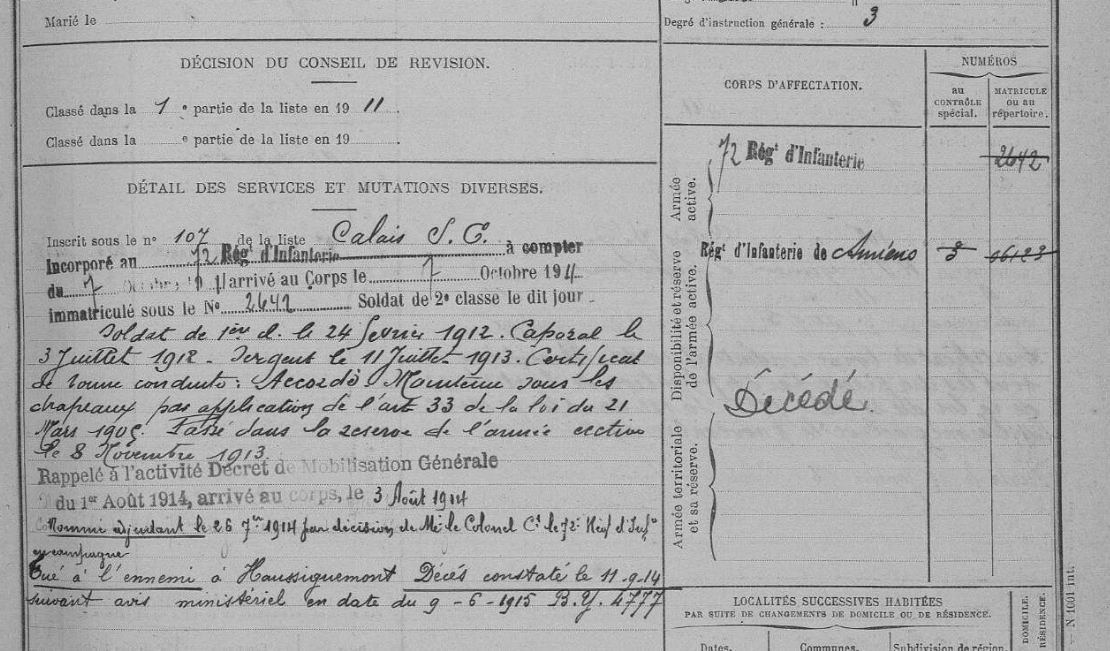 Marié le
Degré d'instruction générale : 3
DÉCISION DU CONSEIL DE REVISION.
Classé dans la 1e partie de la liste en 1911.
Classé dans la e partie de la liste en 19
DÉTAIL DES SERVICES ET MUTATIONS DIVERSES.
Inscrit sous le n° 107 de la liste Calais S. E.
Incorporé au 72 Régt d'Infanterie à compter
du 7 Octobre 1911 arrivé au Corps le 7 Octobre 1911
immatriculé sous le No 2642 Soldat de 2e classe le dit jour
Soldat de 1ère cl. le 24 février 1912. Caporal le
3 Juillet 1912. Sergent le 11 Juillet 1913. Certificat
de bonne conduite : Accordé. Maintenu sous les
drapeaux par application de l'art 33 de la loi du 21
Mars 1905. Passé dans la réserve de l'armée active
le 8 Novembre 1913.
Rappelé à l'activité Décret de Mobilisation Générale
du 1er Août 1914, arrivé au corps, le 3 Août 1914
Nommé adjudant le 26 7bre 1914 par décision de Mr le Colonel Ct le 72e Régt d'Infie
en campagne
Tué à l'ennemi à Haussignemont Décès constaté le 11-9-14
suivant avis ministériel en date du 9-6-1915 B.Y. 4777
CORPS D'AFFECTATION.
NUMÉROS
au CONTRÔLE spécial.
MATRICULE ou au répertoire.
Armée active.
72 Régt d'Infanterie 2642
Disponibilité et réserve de l'armée active.
Régt d'Infanterie de Amiens
Décédé.
Armée territoriale et sa réserve.
LOCALITÉS SUCCESSIVES HABITÉES
PAR SUITE DE CHANGEMENTS DE DOMICILE OU DE RÉSIDENCE.
Dates. Communes. Subdivision de région.
DOMICILE.
RÉSIDENCE.
N 1001 int.